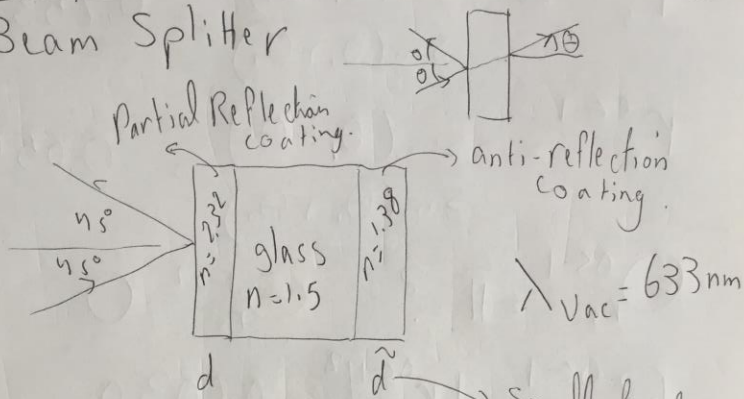 Beam Splitter
θ
θ
θ
Partial Reflection
coating.
anti-reflection
coating.
n=2.32
n=1.38
45°
45°
glass
n=1.5
λVac = 633nm
d
d̃